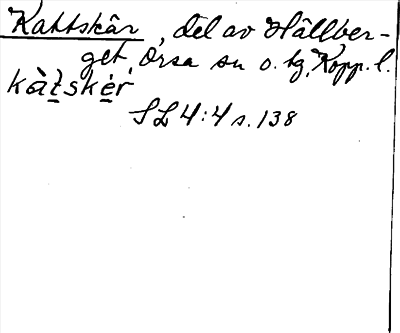 Kattskår, del av Hällber-
get, Orsa sn o. tg, Kopp. l.
kàt̲ske̲r
SL 4:4 s. 138